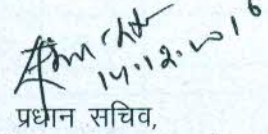 14.12.2016
प्रधान सचिव,